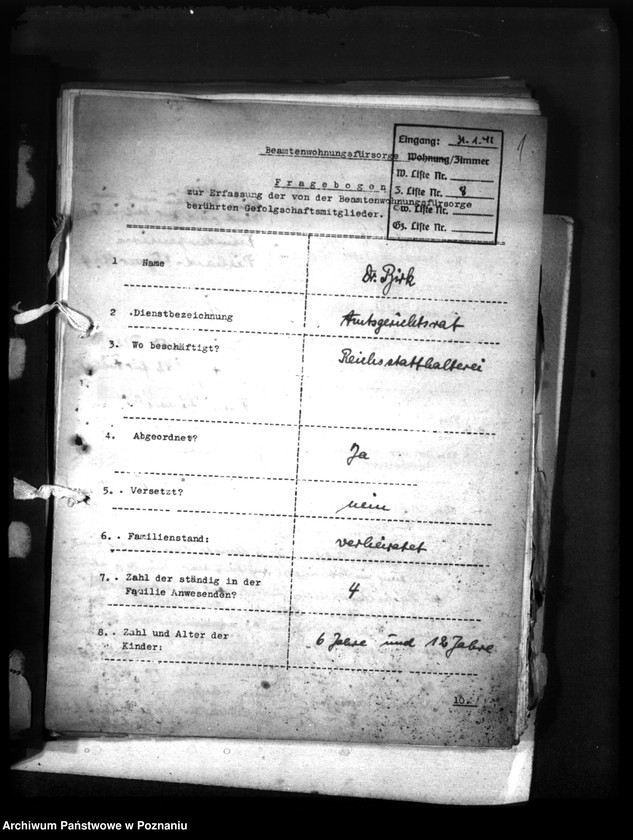 1
Eingang: 31.1.41
Wohnung/Zimmer
W. Liste Nr.
Z. Liste Nr. 8
Gz. Liste Nr.
Beamtenwohnungsfürsorge
Fragebogen
zur Erfassung der von der Beamtenwohnungsfürsorge
berührten Gefolgschaftsmitglieder.
1 Name Dr. Birk
2 .Dienstbezeichnung Amtsgerichtsrat
3. Wo beschäftigt? Reichsstatthalterei
4. Abgeordnet? Ja
5. . Versetzt? nein
6. . Familienstand: verheiratet
7. . Zahl der ständig in der
Familie Anwesenden? 4
8. . Zahl und Alter der
Kinder: 6 Jahre und 12 Jahre
10.
Archiwum Państwowe w Poznaniu